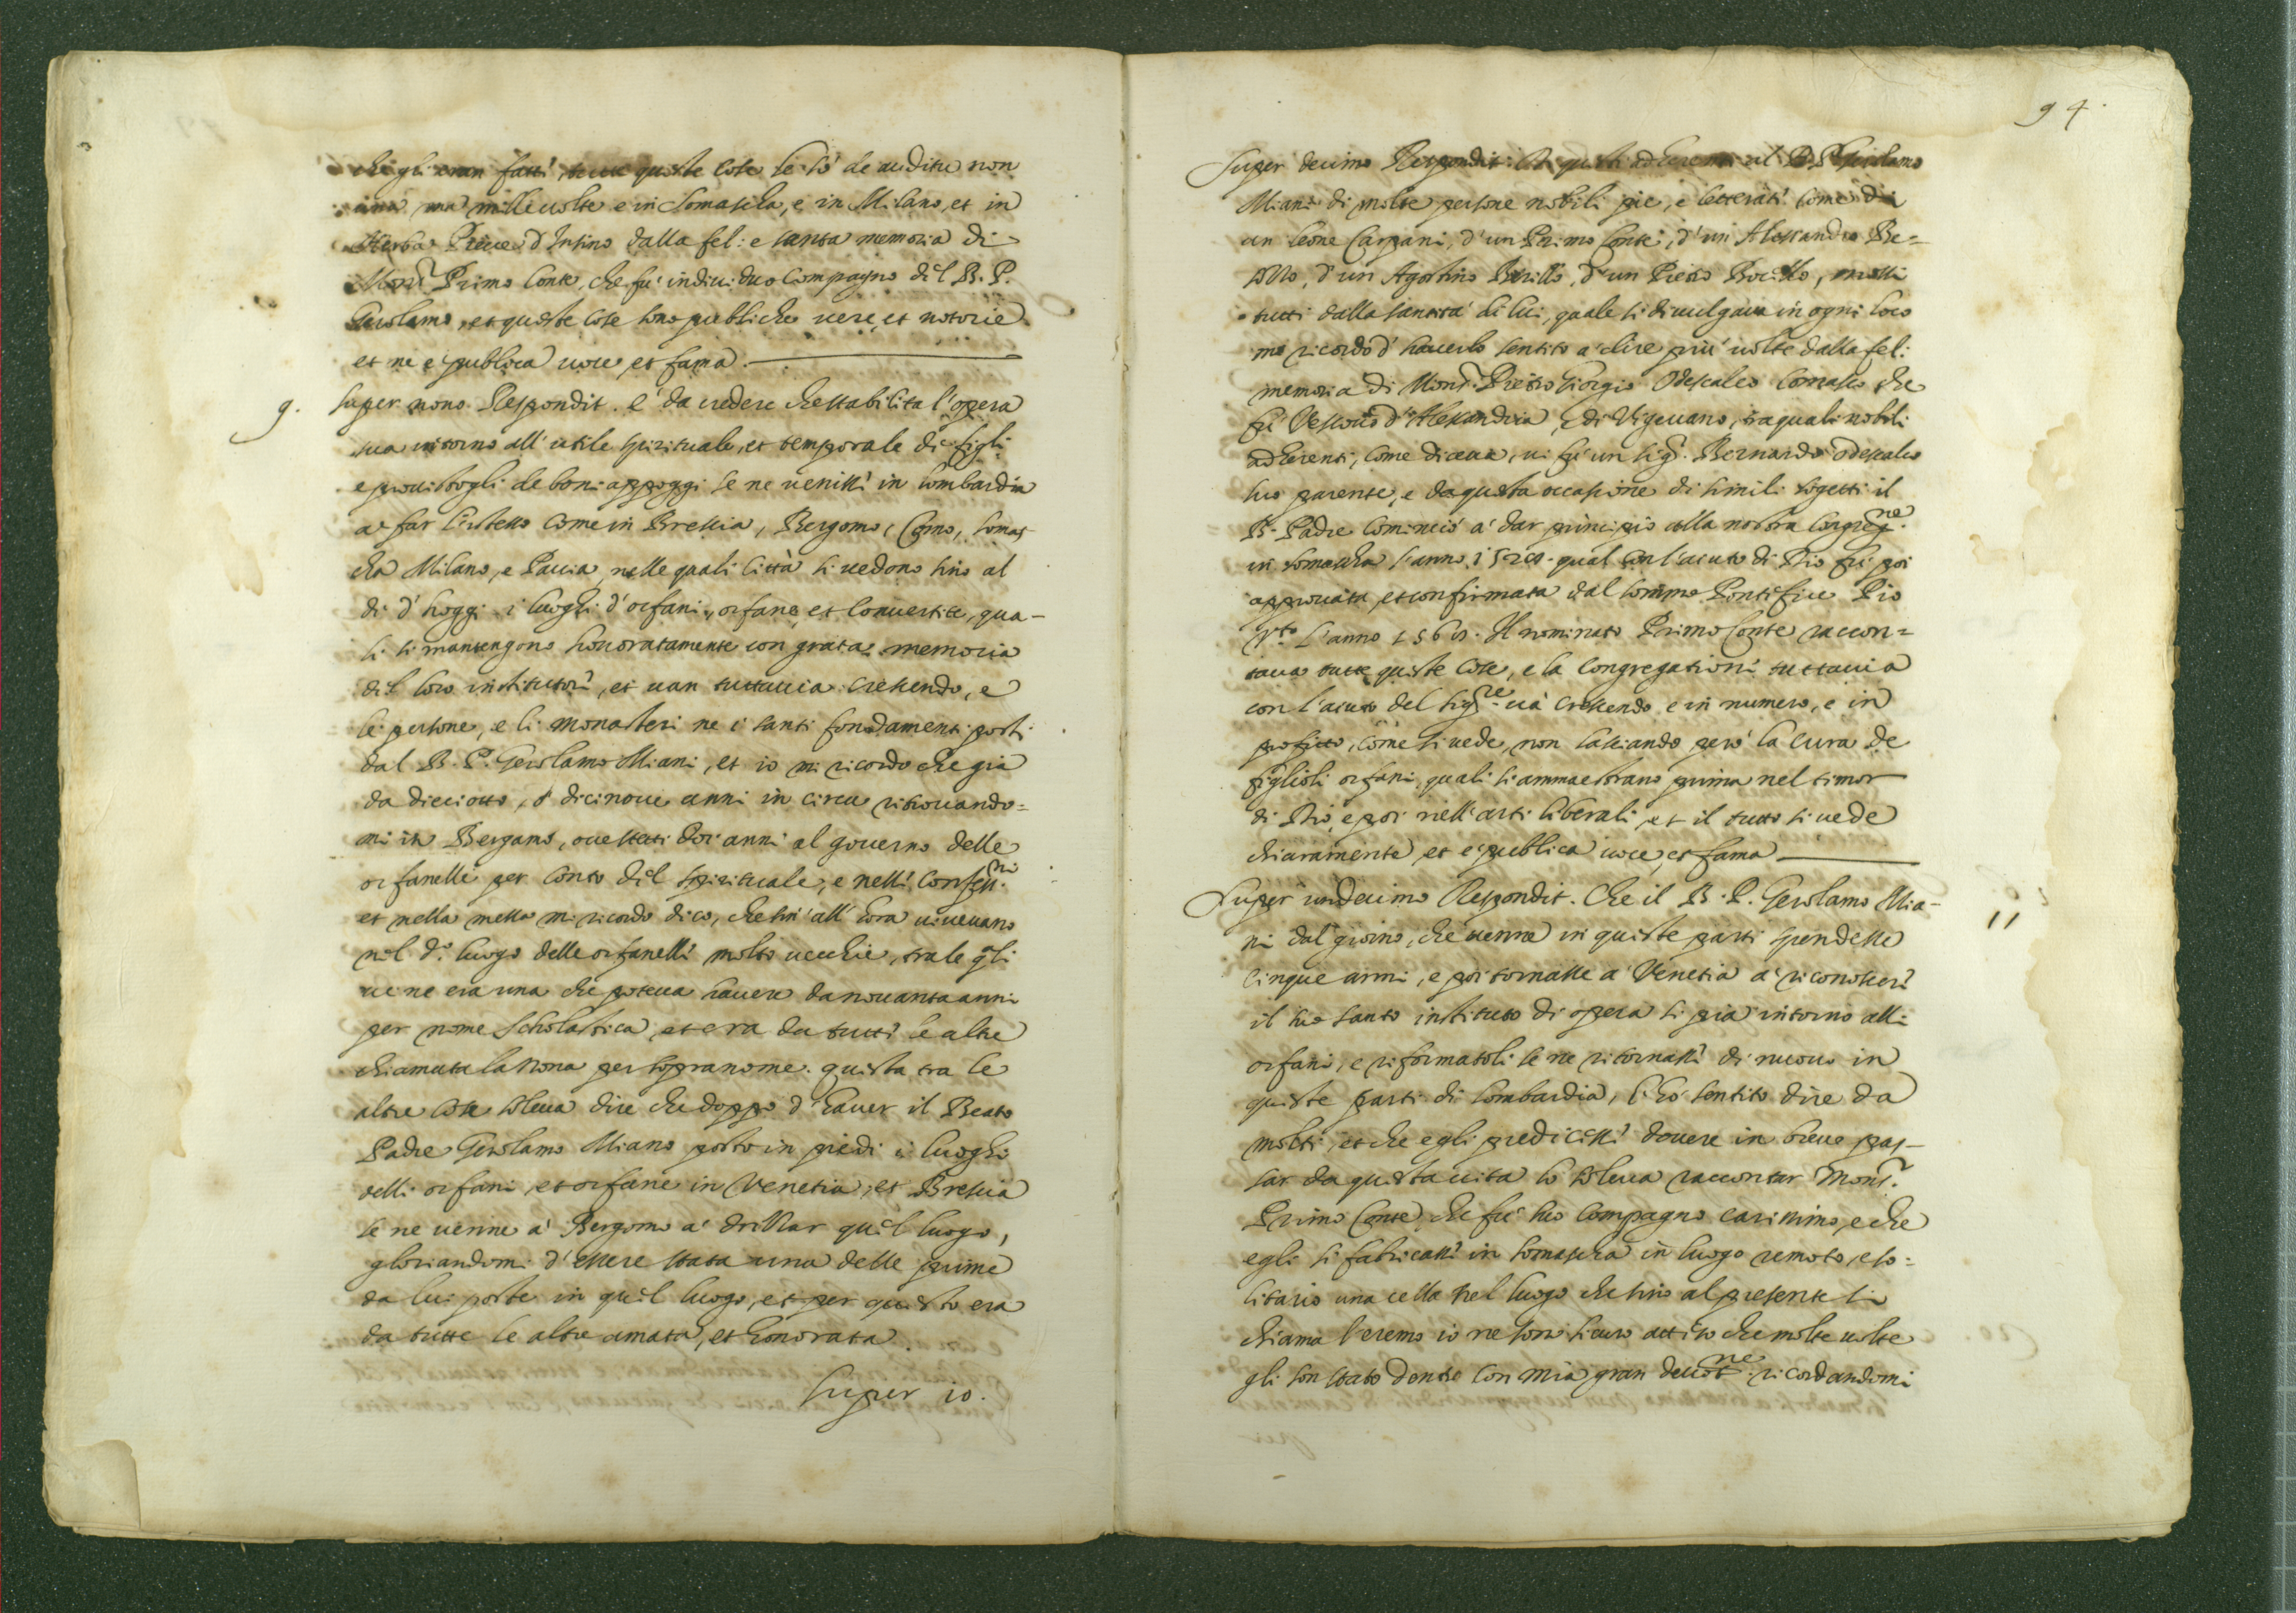 che gli eran fatti, tutte queste cose le sò de auditu non
una, ma mille uolte e in Somascha, e in Milano, et in
Herba Pieve d'Insino dalla fel: e santa memoria di
Mons.r Primo Conte, che fu indiuiduo Compagno del B. P.
Gerolamo, et queste cose sono publiche uere, et notorie
et ne e publica uoce, et fama.
9. Super nono Respondit. è da credere che stabilita l'opera
sua intorno all'utile spirituale, et temporale di figli
e prouistogli de boni appoggi se ne uenisse in lombardia
a' far l'istesso come in Bressia, Bergomo, Como, Somas
cha Milano, e Pauia, nelle quali Città si uedono sino al
di d'hoggi i luoghi d'orfani, orfane, et conuertite, qua-
li si mantengono honoratamente con grata memoria
del loro institutore, et uan tuttauia crescendo, e
le persone, e li monasteri ne i santi fondamenti posti
dal B. P. Gerolamo Miani, et io mi ricordo che gia
da dieciotto, ò dicinoue anni in circa ritrouando=
mi in Bergamo, oue stetti doi anni al gouerno delle
orfanelle per conto del spirituale, e nelle confess.ni
et nella messa mi ricordo dico, che sin'all'hora uiueuano
nel d.o luogo delle orfanelle molto uecchie, tra le q̃li
ue ne era una che poteua hauere da nouanta anni
per nome Scholastica, et era da tutte le altre
chiamata la Nona per sopranome. questa tra le
altre cose soleua dire che doppo d'hauer il Beato
Padre Gerolamo Miano posto in piedi i luoghi
delli orfani, et orfane in Venetia, et Bressia
se ne uenne a' Bergomo a' drissar quel luogo,
gloriandomi d'essere stata una delle prime
da lui poste in quel luogo, et per questo era
da tutte le altre amata, et honorata.
super 10.
94.
Super decimo Respondit. adherenti al B. P. Gerolamo
Miani di molte persone nobili pie, e letterati come di
un leone Carpani, d'un Primo Conte, d'un Alessandro Be=
sozzo, d'un Agostino Barillo, d'un Pietro, mossi
tutti dalla santità di lui, quale si diuulgaua in ogni loco
mi ricordo d'hauerlo sentito a' dire più uolte dalla fel:
memoria di Mons.r Pietro Giorgio Odescalco Comasco che
fù Vescouo d'Alexandria, e di Vigeuano, tra quali nobili
adherenti, come diceua, ui fù un sig.r Bernardo Odescalco
suo parente, e da questa occasione di simili sogetti il
B. Padre cominciò a' dar principio alla nostra Congreg.ne
in Somascha l'anno qual con l'aiuto di Dio fù poi
approuata, et confirmata dal sommo Pontifice Pio
V.to l'anno 1568. Il nominato Primo Conte raccon=
taua tutte queste cose, e la Congregatione tuttauia
con l'aiuto del sig.re uà crescendo e in numero, e in
profitto, come si uede, non lasciando però la cura de
figlioli orfani, quali si ammaestrano prima nel timor
di Dio, e poi nell'arti liberali, et il tutto si uede
chiaramente, et e publica uoce, et fama
Super undecimo Respondit. Che il B. P. Gerolamo Mia-
11
ni dal giorno, che uenne in queste parti spendesse
cinque anni, e poi tornasse a' Venetia a' riconoscere
il suo santo instituto di opera si pia intorno alli
orfani, e riformatoli se ne ritornasse di nuouo in
queste parti di lombardia, l'hò sentito dire da
molti, et che egli predicesse douere in breue pas-
sar da questa uita lo soleua raccontar Mons.r
Primo Conte, che fù suo compagno carissimo, e che
egli si fabricasse in Somascha in luogo remoto, e so=
litario una cella nel luogo che sino al presente si
chiama l'eremo io ne sono sicuro atteso che molte uolte
gli son stato dentro con mia gran deuot.ne ricordandomi